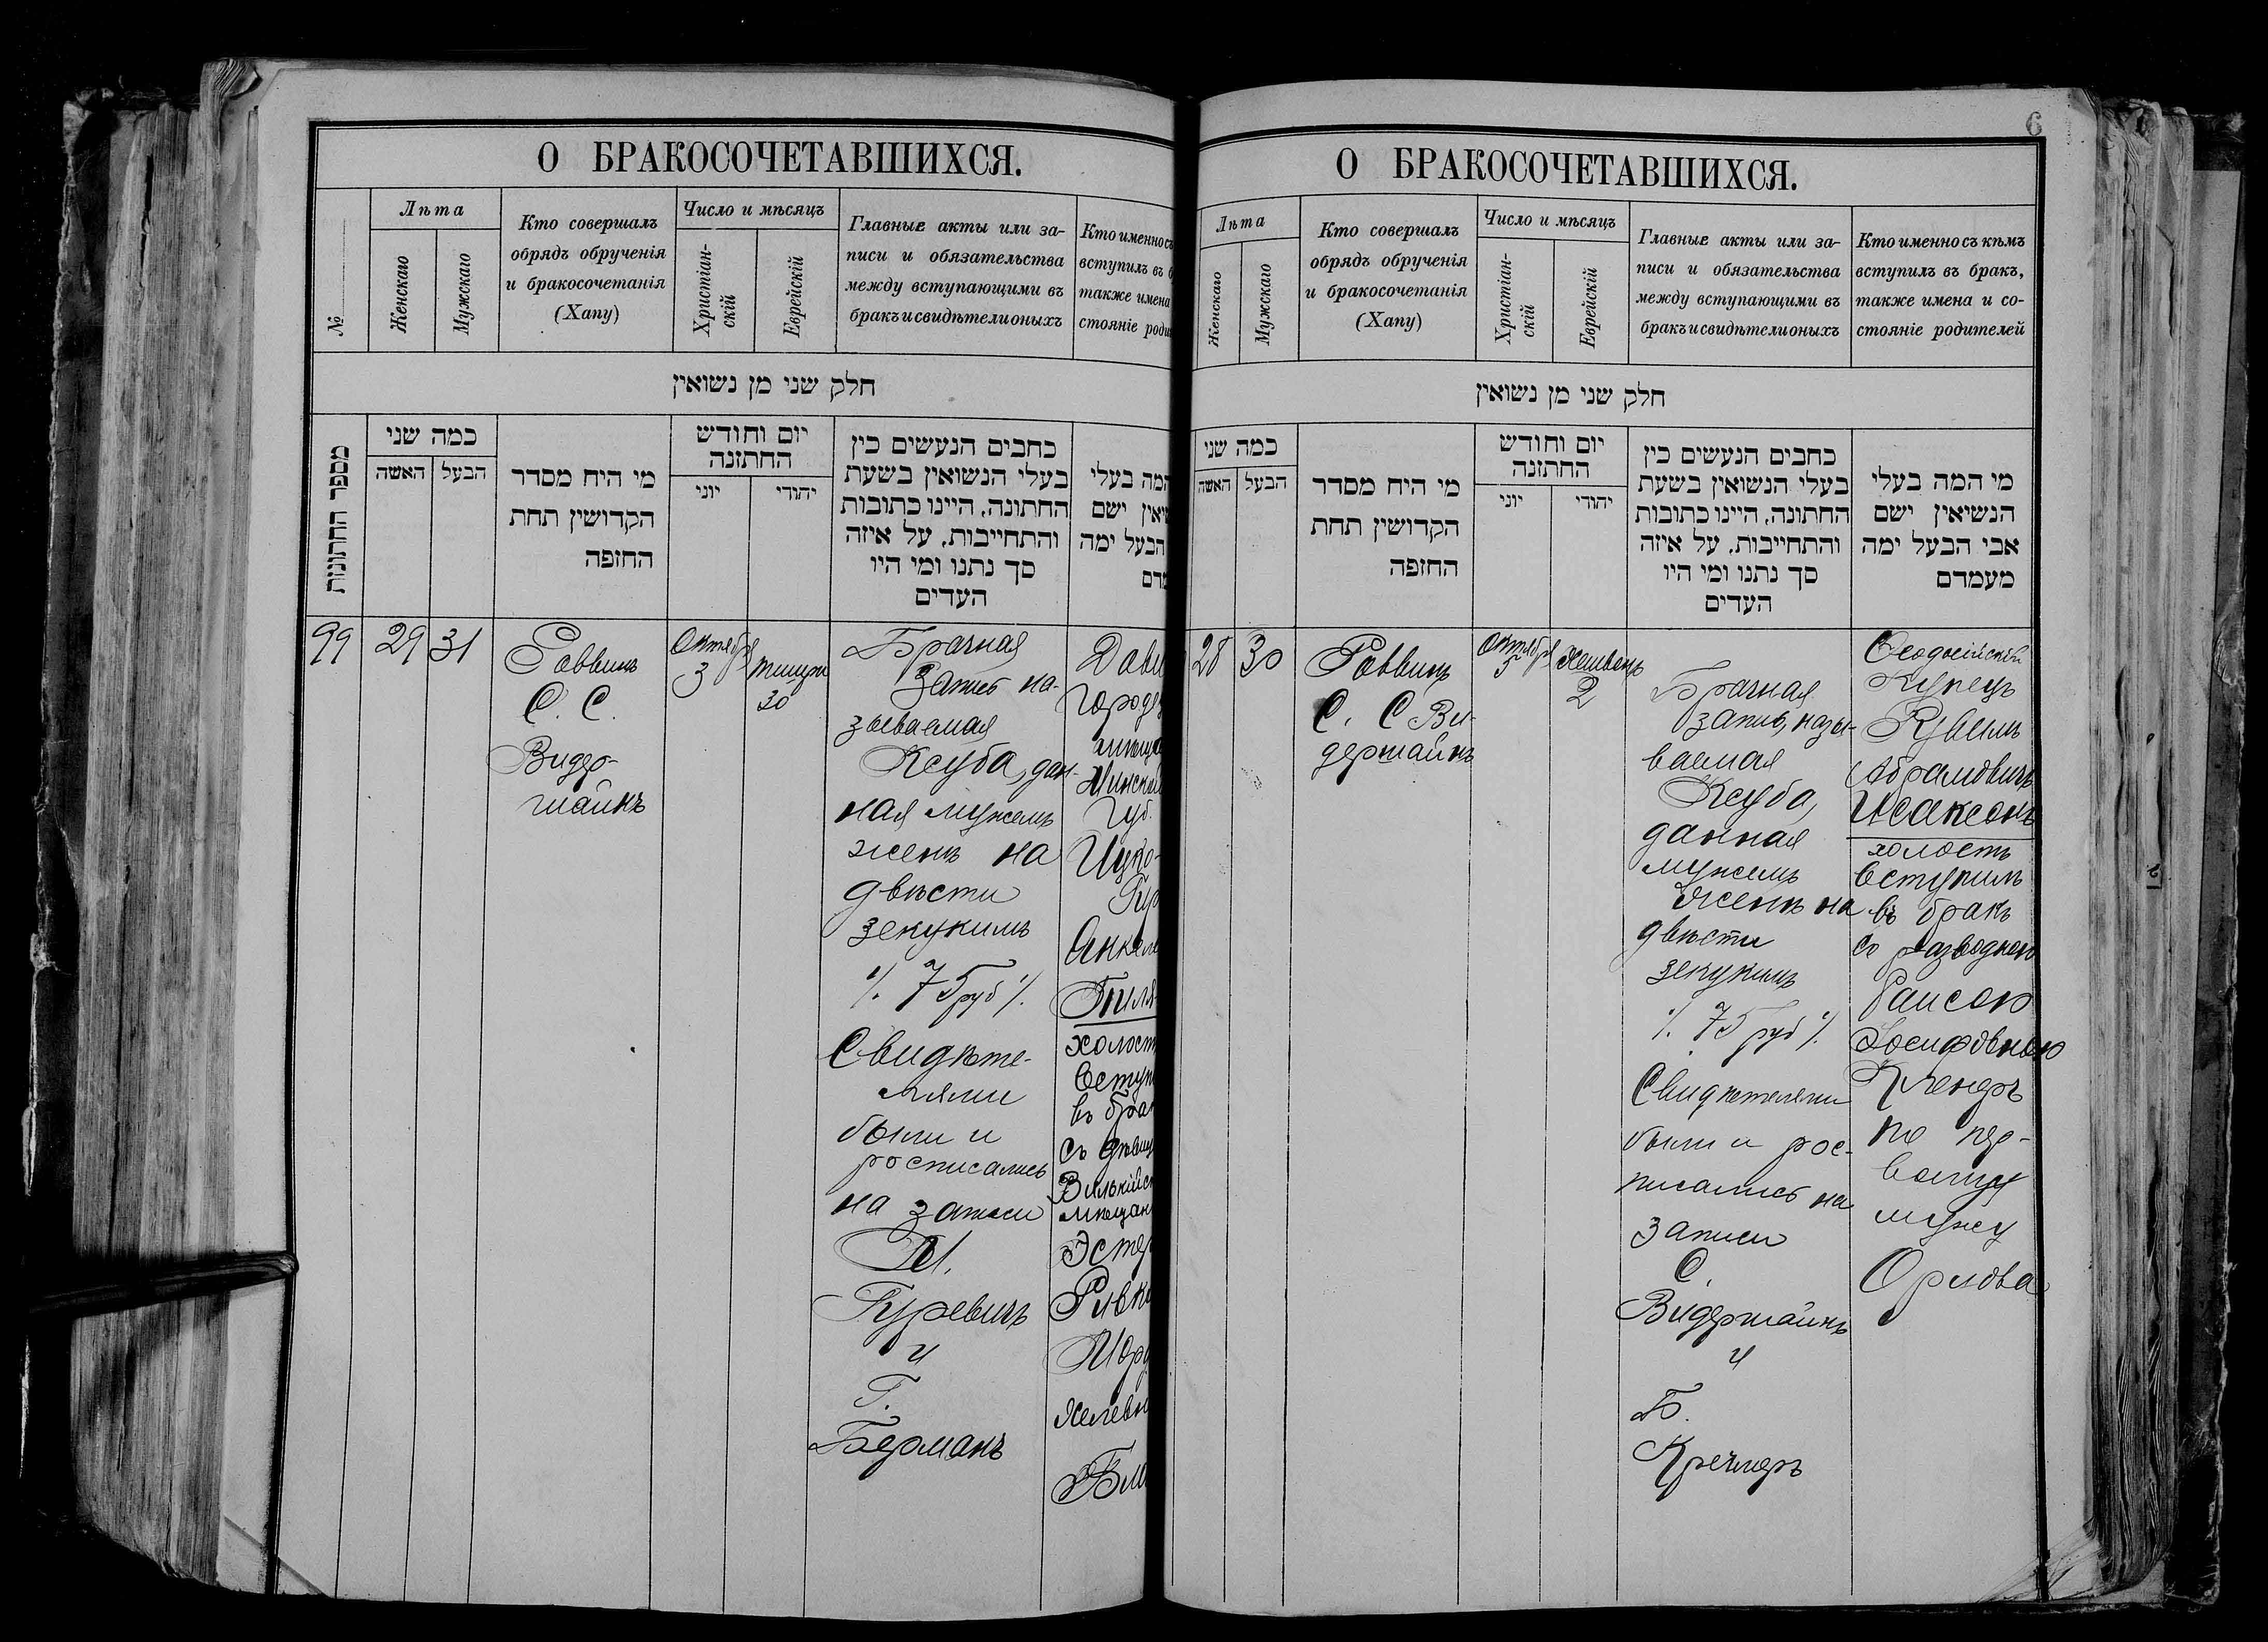 О БРАКОСОЧЕТАВШИХСЯ.
№
Лѣта
Женскаго
Мужскаго
Кто совершалъ
обрядъ обрученія
и бракосочетанія
(Хапу)
Число и мѣсяцъ
Христіан-
скій
Еврейскій
Главные акты или за-
писи и обязательства
между вступающими въ
бракъ и свидѣтели оныхъ
Кто именно съ
вступилъ въ б
также имена
стояніе роди
חלק שני מן נשואין
מספר החתונות
כמה שני
האשה
הבעל
מי היח מסדר
הקדושין תחת
החזפה
יום וחודש
החתזנה
יוני
יהודי
כחבים הנעשים כין
בעלי הנשואין בשעת
החתונה, היינו כתובות
והתחייבות, על איזה
סך נתנו ומי היו
העדים
המה בעלי
שיאין ישם
הבעל ימה
מדם
99
29
31
Раввинъ
С. С.
Видер-
шайнъ
Октября
3
Тишри
30
Брачная
Запись на-
зываемая
Ксуба, дан-
ная мужемъ
женѣ на
двѣсти
зекукимъ
٪ 75 руб ٪
Свидѣте-
лями
были и
росписались
на записи
М.
Гуревичъ
и
Г.
Берманъ
Дави
Городе
мѣща
Минской
Губ.
Ицко-
Гир
Анкел
Гиля-
холост
Вступ
въ бра
съ дѣвиц
Вилькійс
мѣщан
Эстер
Ривк
Морд
Хелевн
Блю
6
О БРАКОСОЧЕТАВШИХСЯ.
Лѣта
Женскаго
Мужскаго
Кто совершалъ
обрядъ обрученія
и бракосочетанія
(Хапу)
Число и мѣсяцъ
Христіан-
скій
Еврейскій
Главные акты или за-
писи и обязательства
между вступающими въ
бракъ и свидѣтели оныхъ
Кто именно съ кѣмъ
вступилъ въ бракъ,
также имена и со-
стояніе родителей
חלק שני מן נשואין
כמה שני
האשה
הבעל
מי היח מסדר
הקדושין תחת
החזפה
יום וחודש
החתזנה
יוני
יהודי
כחבים הנעשים כין
בעלי הנשואין בשעת
החתונה, היינו כתובות
והתחייבות, על איזה
סך נתנו ומי היו
העדים
מי המה בעלי
הנשיאין ישם
אבי הבעל ימה
מעמדם
28
30
Раввинъ
С. С Ви-
дершайнъ
Октября
5
Хешвонъ
2
Брачная
запись, назы-
ваемая
Ксуба,
данная
мужемъ
женѣ на
двѣсти
зекукимъ
٪ 75 руб ٪
Свидѣтелями
были и рос-
писались на
записи
С.
Видершайнъ
и
Б.
Кречмеръ
Ѳеодосійскій
Купецъ
Рувимъ
Абрамовичъ
Исаксонъ
холостъ
Вступилъ
въ бракъ
съ разводною
Раисою
Іосифовною
Кленеръ
по пер-
вому
мужу
Орлова